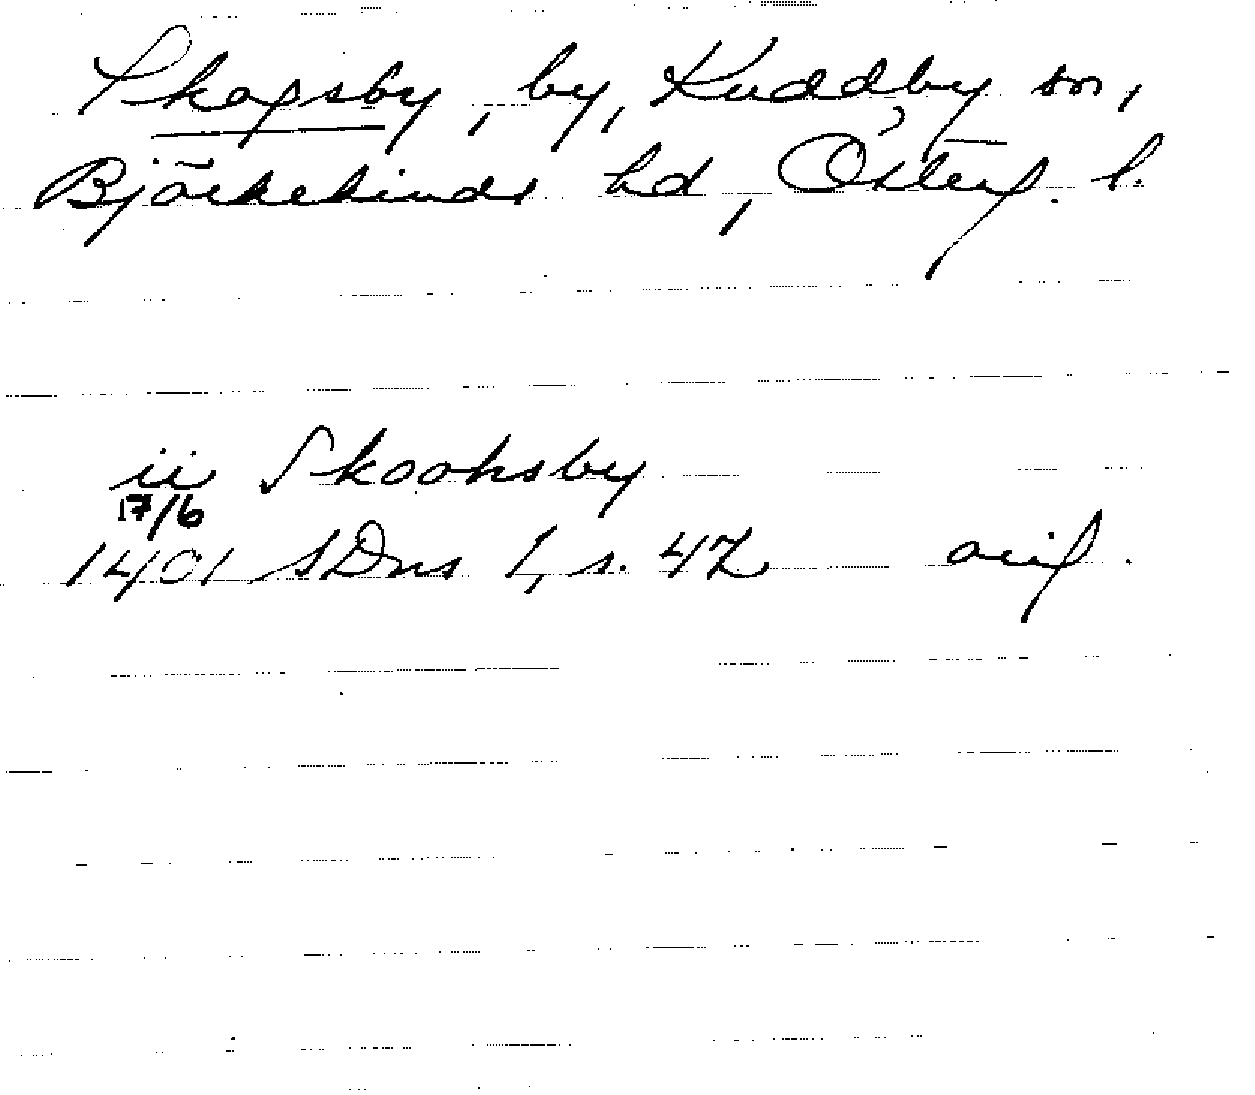 Skogsby, by, Kuddby sn,
Björkekinds hd, Österg. l.
ii Skoohsby
17/6
1401 SDns 1, s. 42 orig.